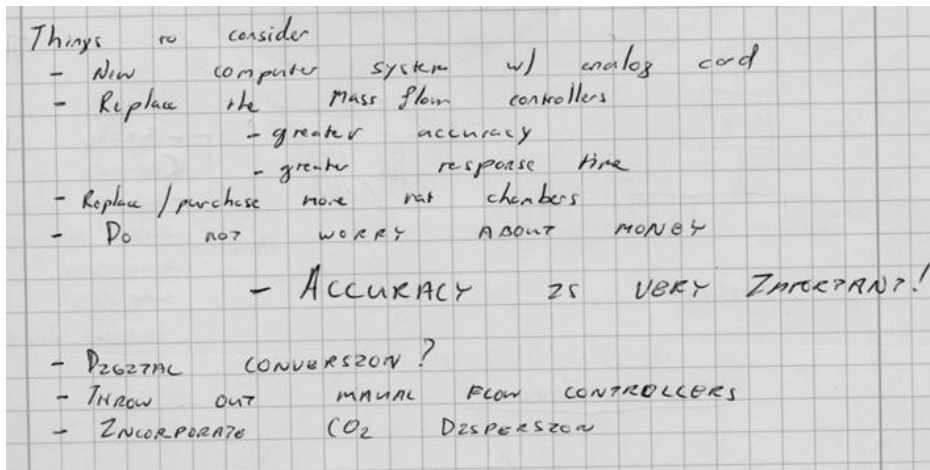 Things to consider
- New computer system w/ analog card
- Replace the Mass flow controllers
- greater accuracy
- greater response time
- Replace / purchase more rat chambers
- Do NOT WORRY ABOUT MONEY
- ACCURACY IS VERY IMPORTANT!
- DIGITAL CONVERSION?
- THROW OUT MANUAL FLOW CONTROLLERS
- INCORPORATE CO2 DISPERSION